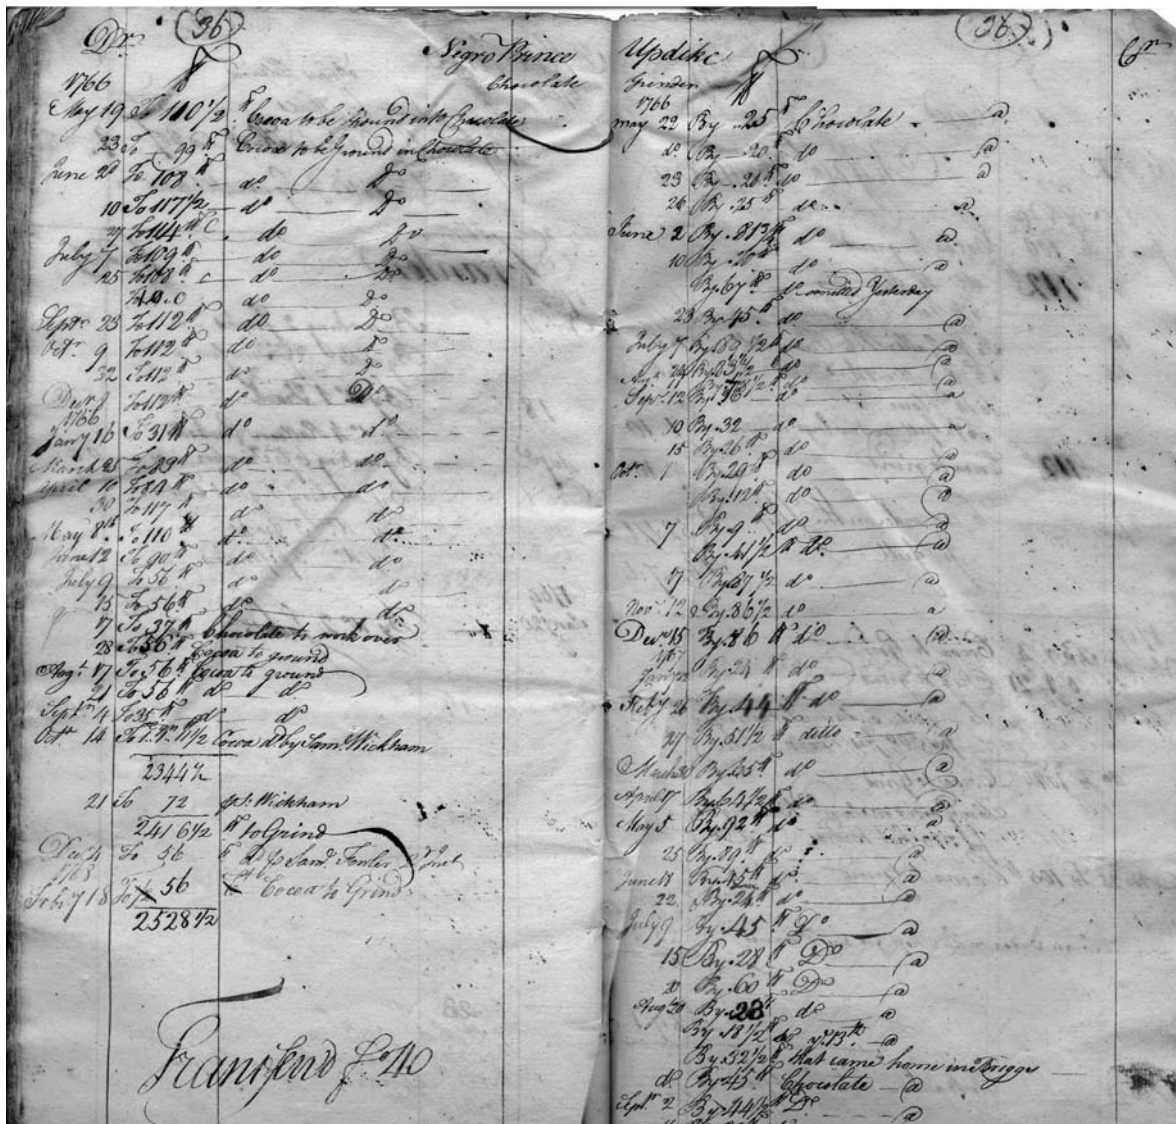 Dr 36 Negro Prince
Chocolate
1766 ℔
May 19 To 110 1/2 ℔ Cocoa to be Ground into Chocolate
23 To 99 ℔ Cocoa to be Ground in Chocolate
June 2d To 108 ℔ do Do
10 To 117 1/2 do Do
27 To 114 ℔ do Do
July 7 To 109 ℔ do Do
25 To 108 ℔ do Do
do Do
Septr 23 To 112 ℔ do Do
Octr 9 To 112 ℔ do Do
32 To 112 ℔ do Do
Decr To 112 ℔ do Do
1766
Jany 16 To 31 ℔ do do
March 25 To 89 ℔ do do
April 10 To 84 ℔ do do
30 To 117 ℔ do do
May 8th To 110 ℔ do do
June 12 To 90 ℔ do do
July 9 To 56 ℔ do
15 To 56 ℔ do do
17 To 37 ℔ Chocolate to work over
28 To 56 ℔ Cocoa to ground
Augt 17 To 56 ℔ Cocoa to ground
21 To 56 ℔ do do
Septr 4 To 35 ℔ do do
Octr 14 Cocoa by Saml Wickham
2344 1/2
21 To 72 Wickham
2416 1/2 ℔ to Grind
Decr 4 To 56 ℔ Saml Fowler
1768
Feby 18 To 56 Cocoa to Grind
2528 1/2
Transferd fo 40
Updike 36 Cr
Grinder ℔
1766
May 22 By 25 ℔ Chocolate @
do By 20 ℔ do @
23 By 20 ℔ do @
26 By 25 ℔ do @
June 2 By 81 3/4 do @
10 By 20 ℔ do @
By 67 ℔ do omitted Yesterday
23 By 45 ℔ do @
July 7 By 89 1/2 ℔ do @
Augt 29 By 83 1/2 do @
By 78 1/2 ℔ do @
Sepr 12 By do @
10 By 32 do @
15 By 26 ℔ do @
Octr 1 By 29 ℔ do @
By 12 ℔ do @
7 By 9 ℔ do @
By 41 1/2 ℔ do @
17 By 87 1/2 do @
Novr 12 By 86 1/2 do @
Decr 15 By 86 ℔ do @
1767
Jany By 24 ℔ do @
Feby 26 By 44 ℔ do @
27 By 51 1/2 ℔ ditto @
March By 35 ℔ do @
April 17 By ℔ do @
May 5 By 92 ℔ do @
25 By 89 ℔ @
June 18 By 45 ℔ do @
22 By 24 ℔ do @
July 9 By 45 ℔ Do @
15 By 28 ℔ Do @
20 By 60 ℔ Do @
Augt 20 By 28 ℔ do @
By 18 1/2 ℔ do ye 13th @
By 32 1/2 ℔ that came home in Briggs
do By 45 ℔ Chocolate @
Septr 2 By 44 1/2 ℔ Do @